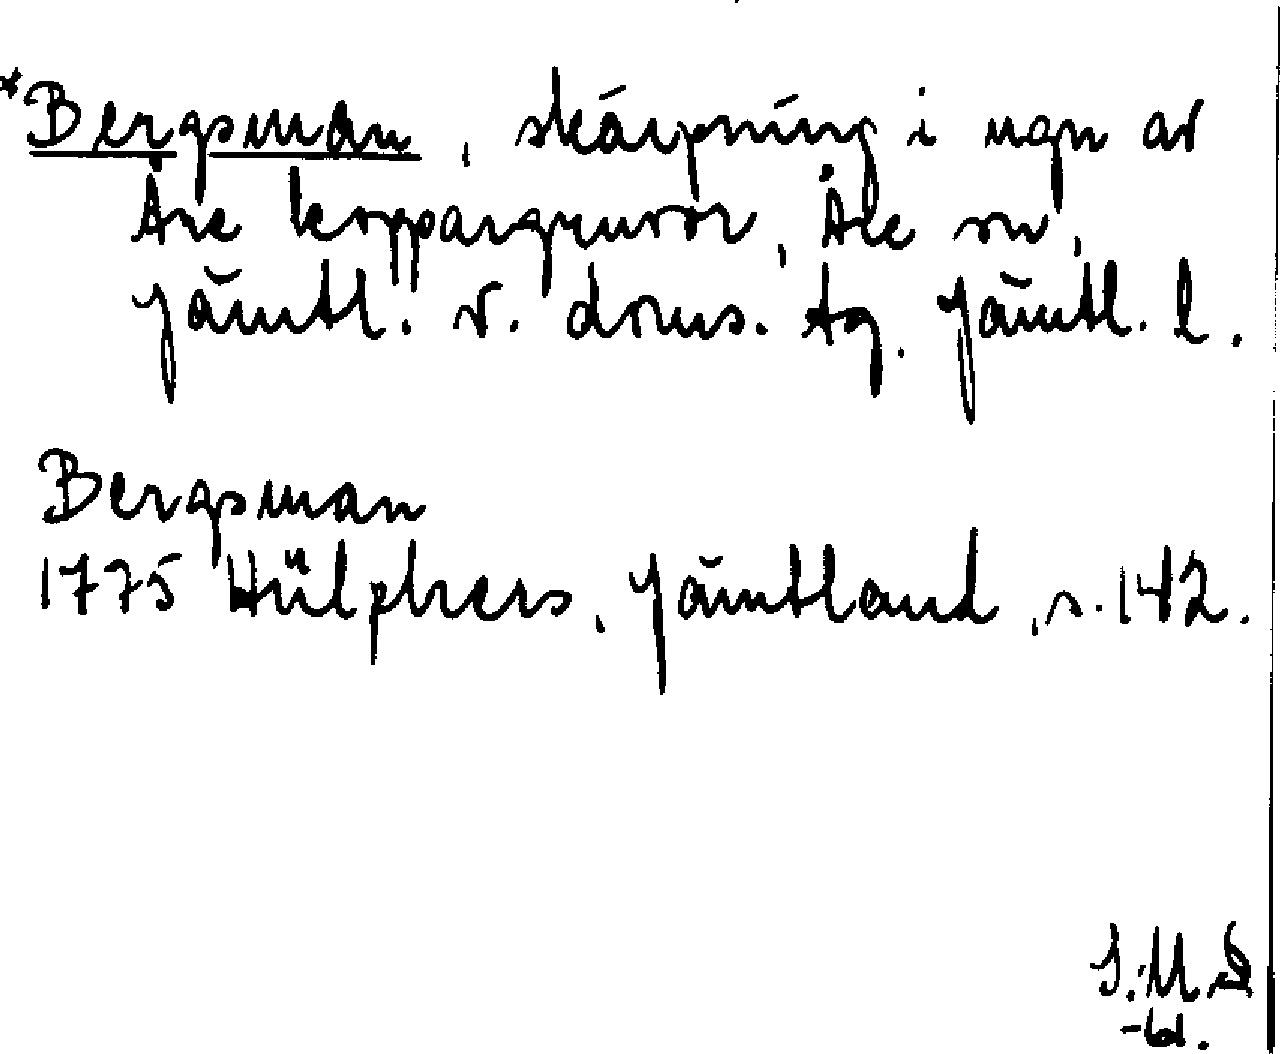 *Bergsman, skärpning i ngn av
Åre koppargruvor, Åre sn,
Jämtl. v. doms. tg. Jämtl. l.
Bergsman
1775 Hülphers, Jämtland, s. 142.
-61.